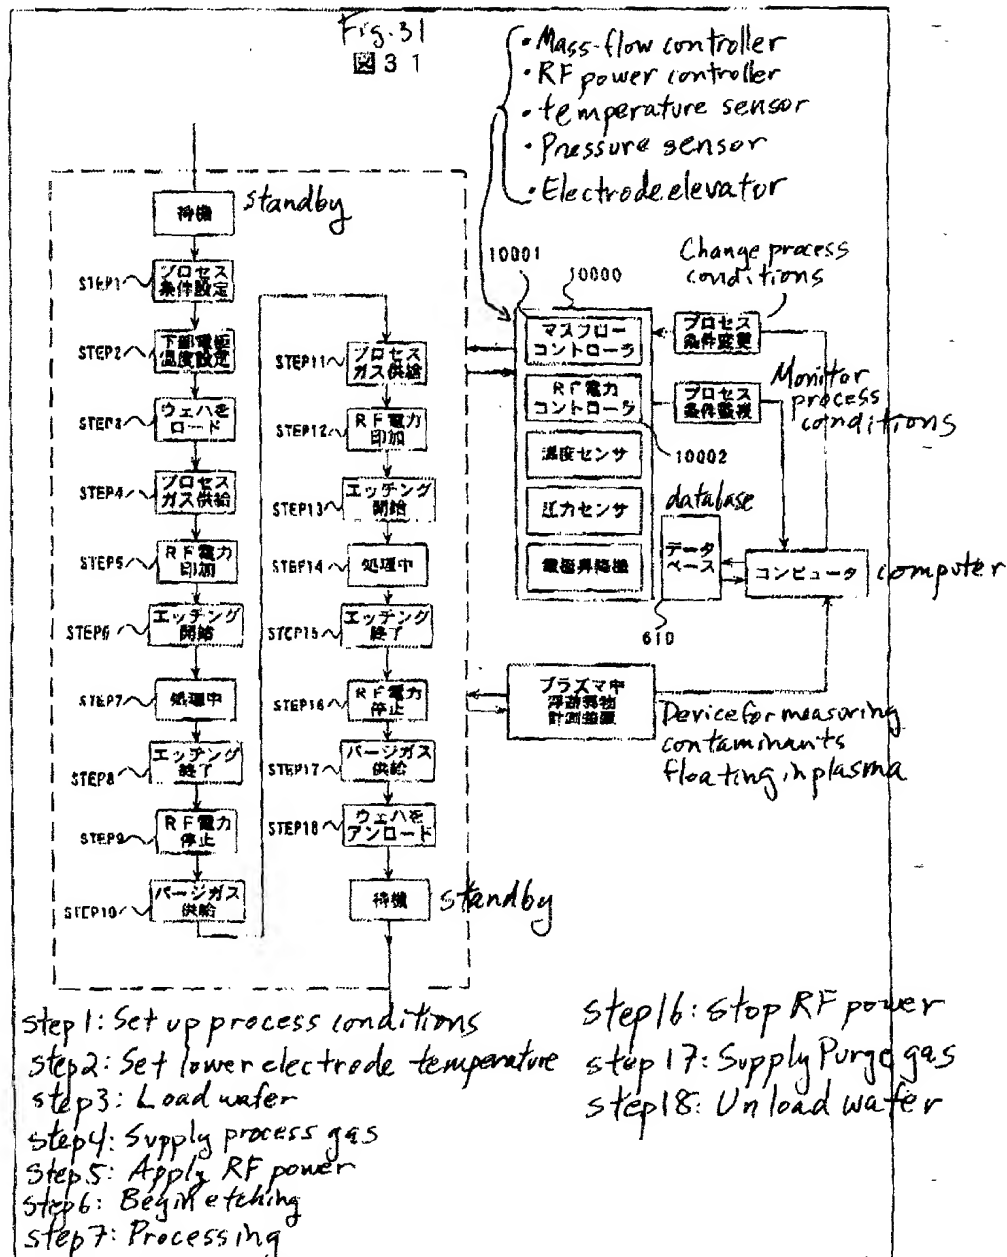 Fig. 31
図31
• Mass-flow controller
• RF power controller
• temperature sensor
• Pressure sensor
• Electrode elevator
待機
standby
STEP1
プロセス
条件設定
STEP2
下部電極
温度設定
STEP3
ウェハを
ロード
STEP4
プロセス
ガス供給
STEP5
RF電力
印加
STEP6
エッチング
開始
STEP7
処理中
STEP8
エッチング
終了
STEP9
RF電力
停止
STEP10
パージガス
供給
STEP11
プロセス
ガス供給
STEP12
RF電力
印加
STEP13
エッチング
開始
STEP14
処理中
STEP15
エッチング
終了
STEP16
RF電力
停止
STEP17
パージガス
供給
STEP18
ウェハを
アンロード
待機
standby
10001
10000
マスフロー
コントローラ
RF電力
コントローラ
10002
温度センサ
圧力センサ
電極昇降機
Change process
conditions
プロセス
条件変更
Monitor
process
conditions
プロセス
条件監視
database
データ
ベース
610
コンピュータ
computer
プラズマ中
浮遊異物
計測装置
Device for measuring
contaminants
floating in plasma
step 1: Set up process conditions
step 2: Set lower electrode temperature
step 3: Load wafer
step 4: Supply process gas
step 5: Apply RF power
step 6: Begin etching
step 7: Processing
step 16: Stop RF power
step 17: Supply Purge gas
step 18: Unload wafer